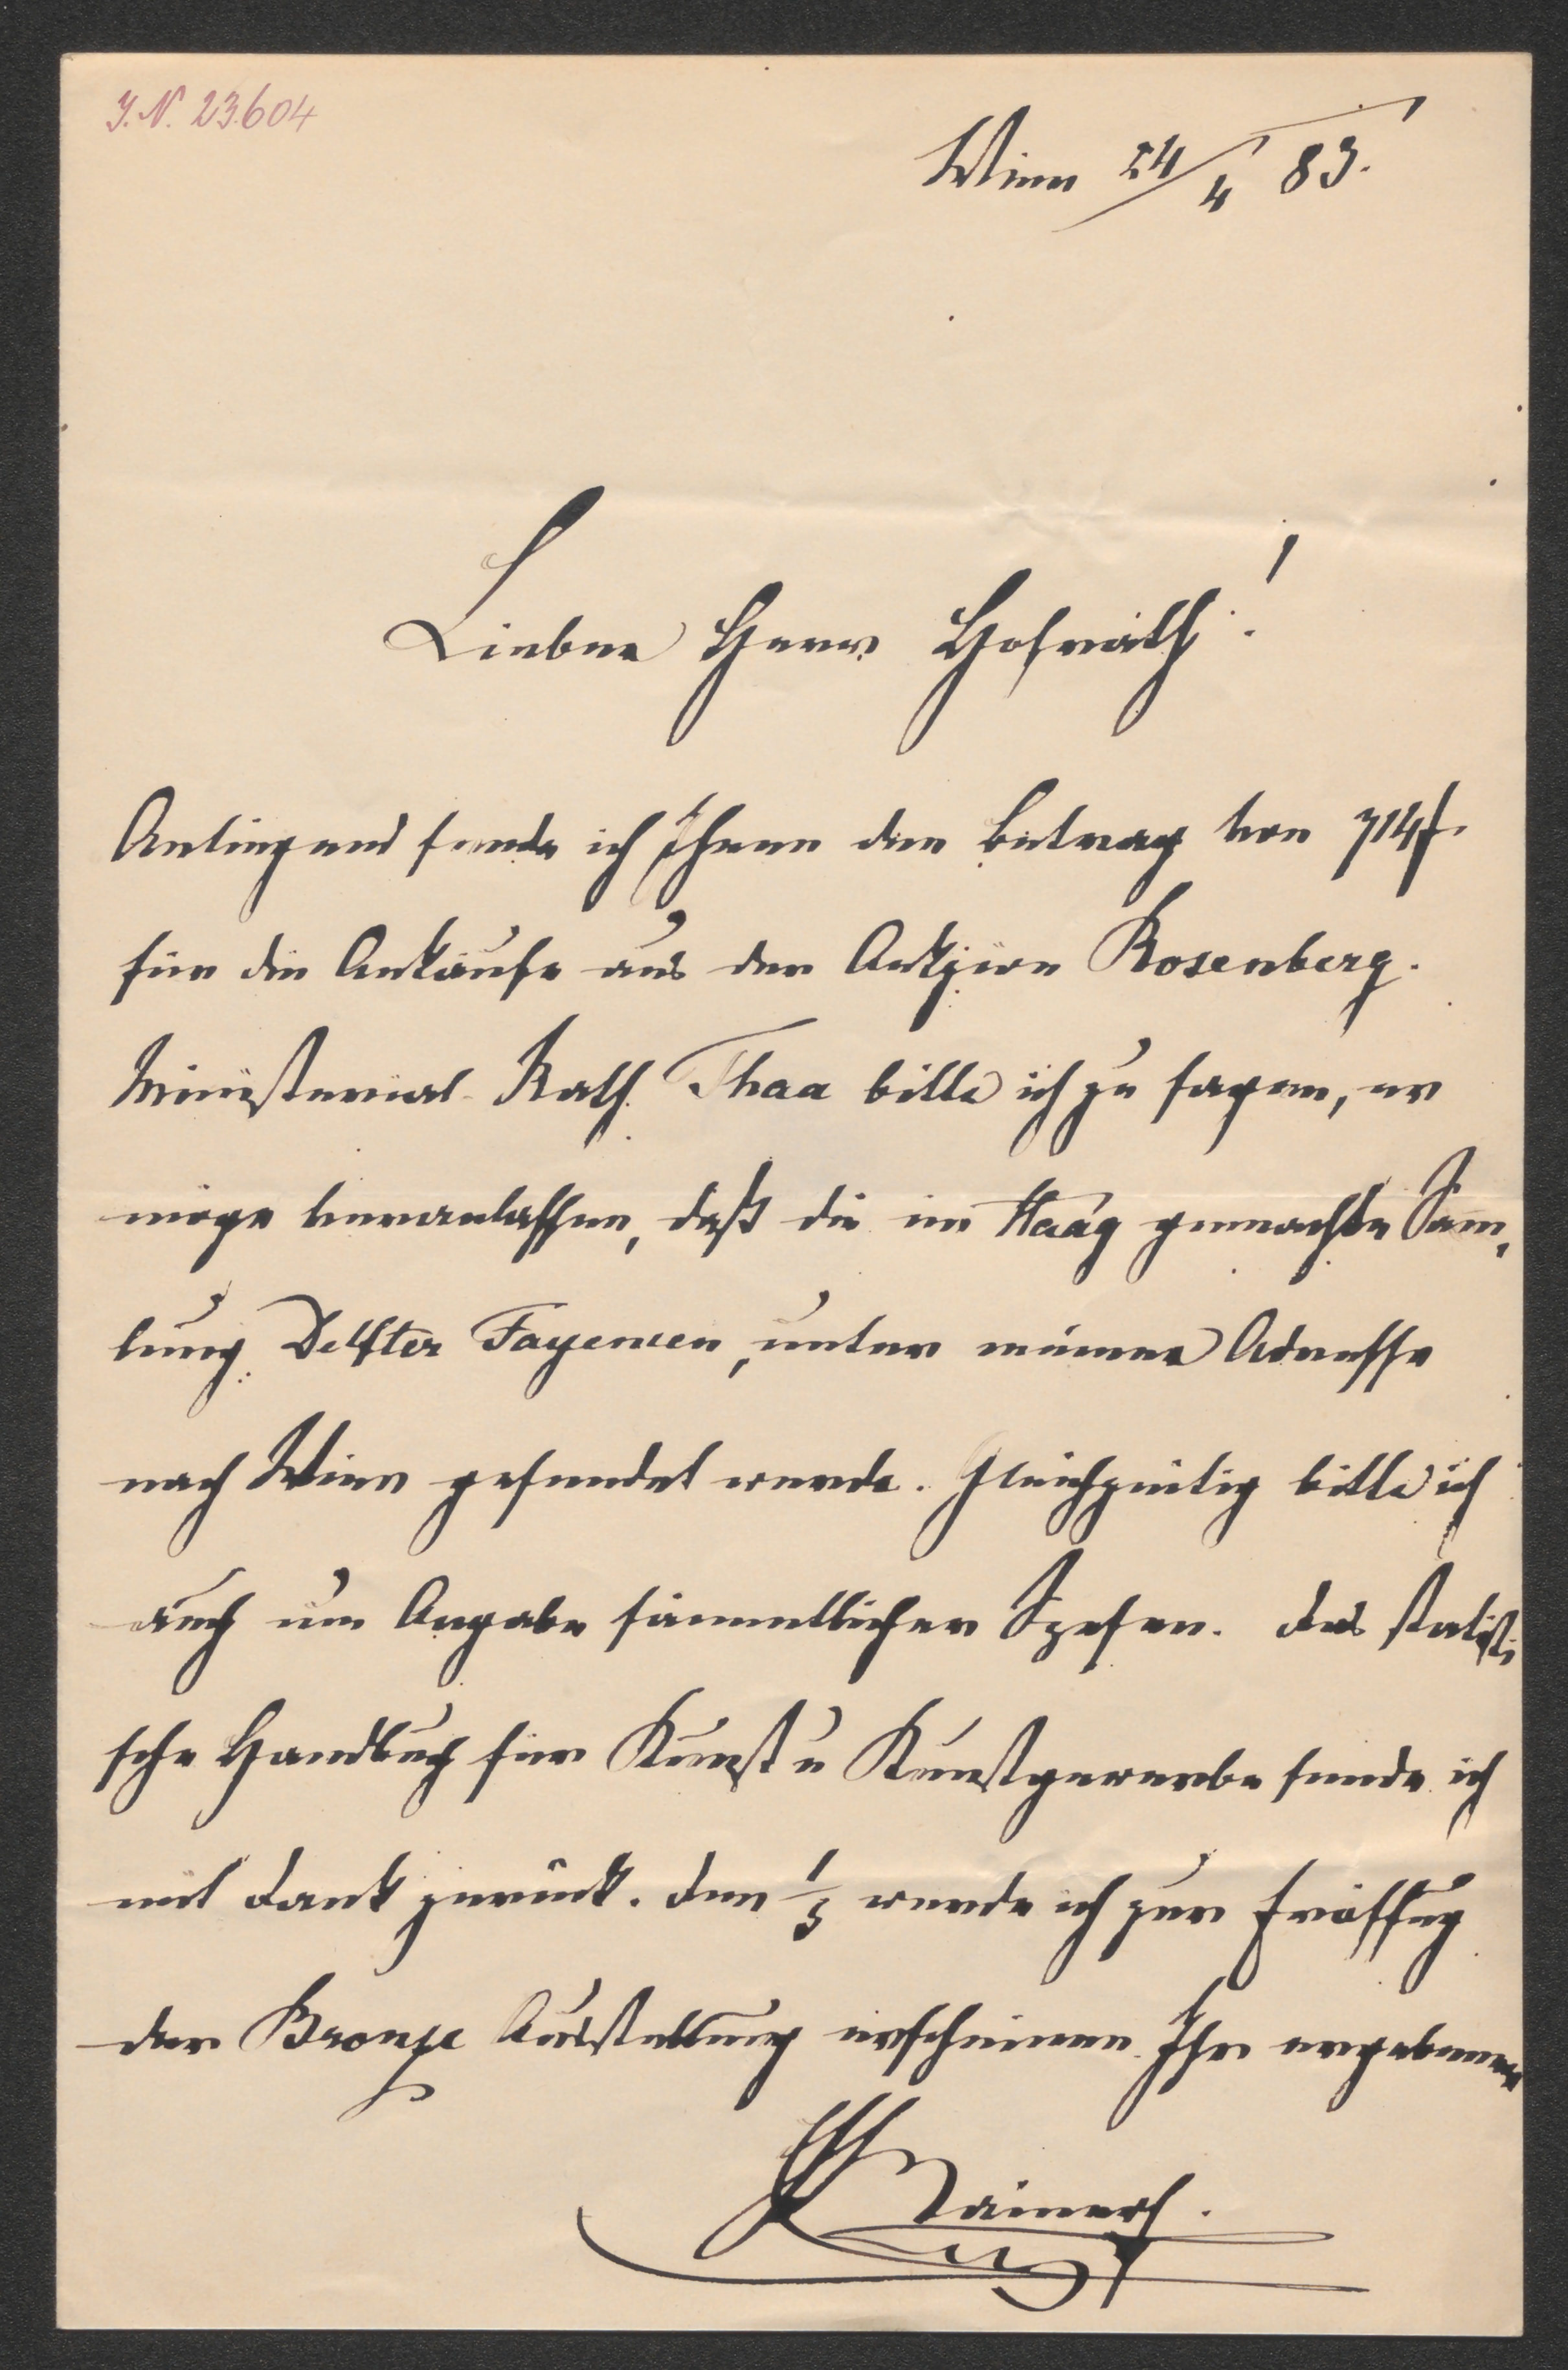 I.N. 23.604
Wien 24/4 83.
Lieber Herr Hofrath!
Anliegend sende ich Ihnen den Betrag von 714 f.
für die Ankäufe aus der Auktzion Rosenberg.
Ministerial-Rath Thaa bitte ich zu sagen, er
möge veranlassen, daß die im Haag gemachte Sam¯,
lung Delfter Fayencen, unter meiner Adresse
nach Wien gesendet werde. Gleichzeitig bitte ich
auch um Angabe sämmtlicher Spesen. Das statisti,
sche Handbuch für Kunst u Kunstgewerbe sende ich
mit Dank zurück. Den 1/5 werde ich zur Eröffnung
der Bronze Ausstellung erscheinen. Ihr ergebener
EH Rainer